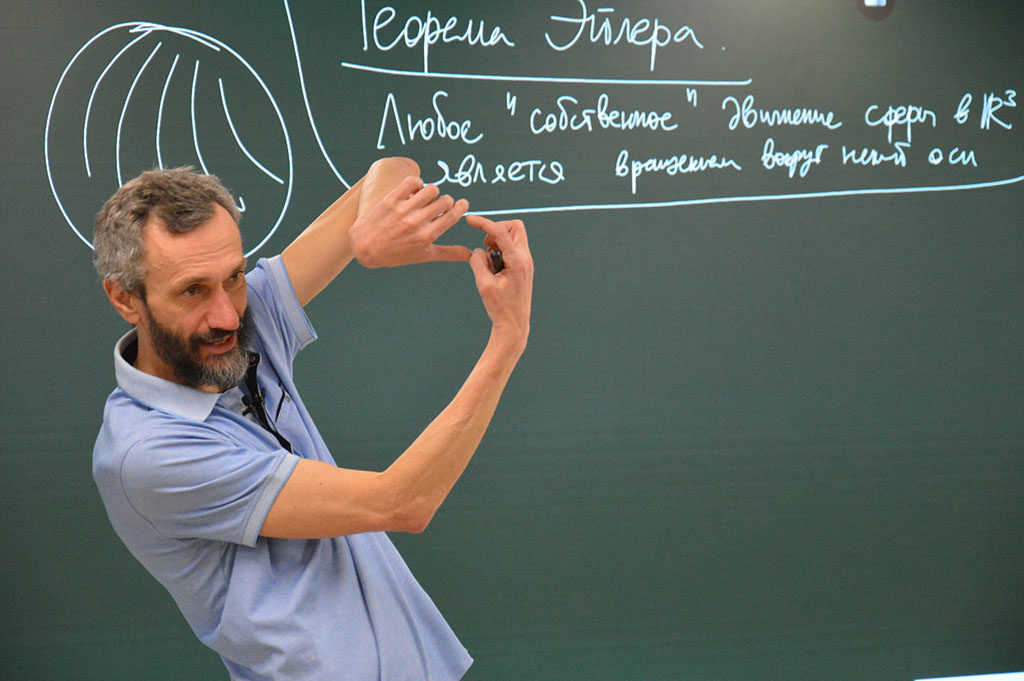 Теорема Эйлера.
Любое "собственное" движение сферы в ℝ³
является вращением вокруг некой оси